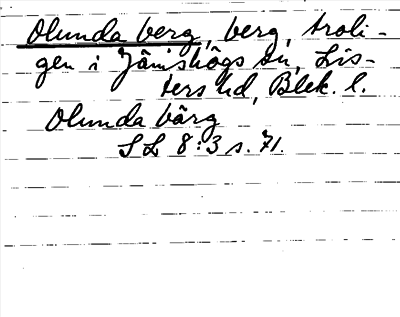 Olunda berg, berg, troli-
gen i Jämshögs sn, Lis-
ters hd, Blek. l.
Olunda bärg
SL 8:3 s. 71.